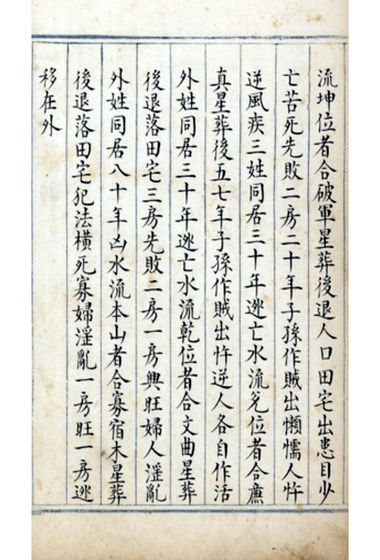 流坤位者合破軍星葬後退人口田宅出患目少
亡苦死先敗二房二十年子孫作賊出懶懦人忤
逆風疾三姓同居三十年逃亡水流兌位者合廉
真星葬後五七年子孫作賊出忤逆人各自作活
外姓同居三十年逃亡水流乾位者合文曲星葬
後退落田宅三房先敗二房一房興旺婦人淫亂
外姓同居八十年凶水流本山者合寡宿木星葬
後退落田宅犯法橫死寡婦淫亂一房旺一房逃
移在外